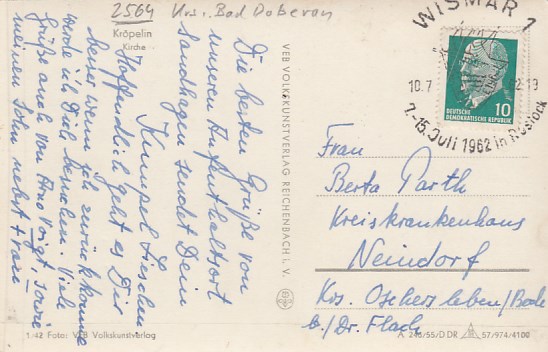 2564 Krs. Bad Doberan
Kröpelin
Kirche
Die besten Grüße von
unseren Aufenthaltsort
Sandhagen sendet Dein
Kumpel Lieschen
Hoffendlich geht es Dir
besser wenn ich zurück komme
werde ich Dich besuchen. Viele
Grüße auch von Frau Voigt, sowie
meinen Sohn nebst Frau
VEB VOLKSKUNSTVERLAG REICHENBACH i. V.
WISMAR 1
10.7
2-19
7.-15. Juli 1962 in Rostock
10
DEUTSCHE
DEMOKRATISCHE REPUBLIK
Frau
Berta Parth
Kreiskrankenhaus
Neindorf
Krs. Oschersleben/Bode
b/Dr. Flach
1/42 Foto: VEB Volkskunstverlag
A 246/55/DDR 57/974/4100